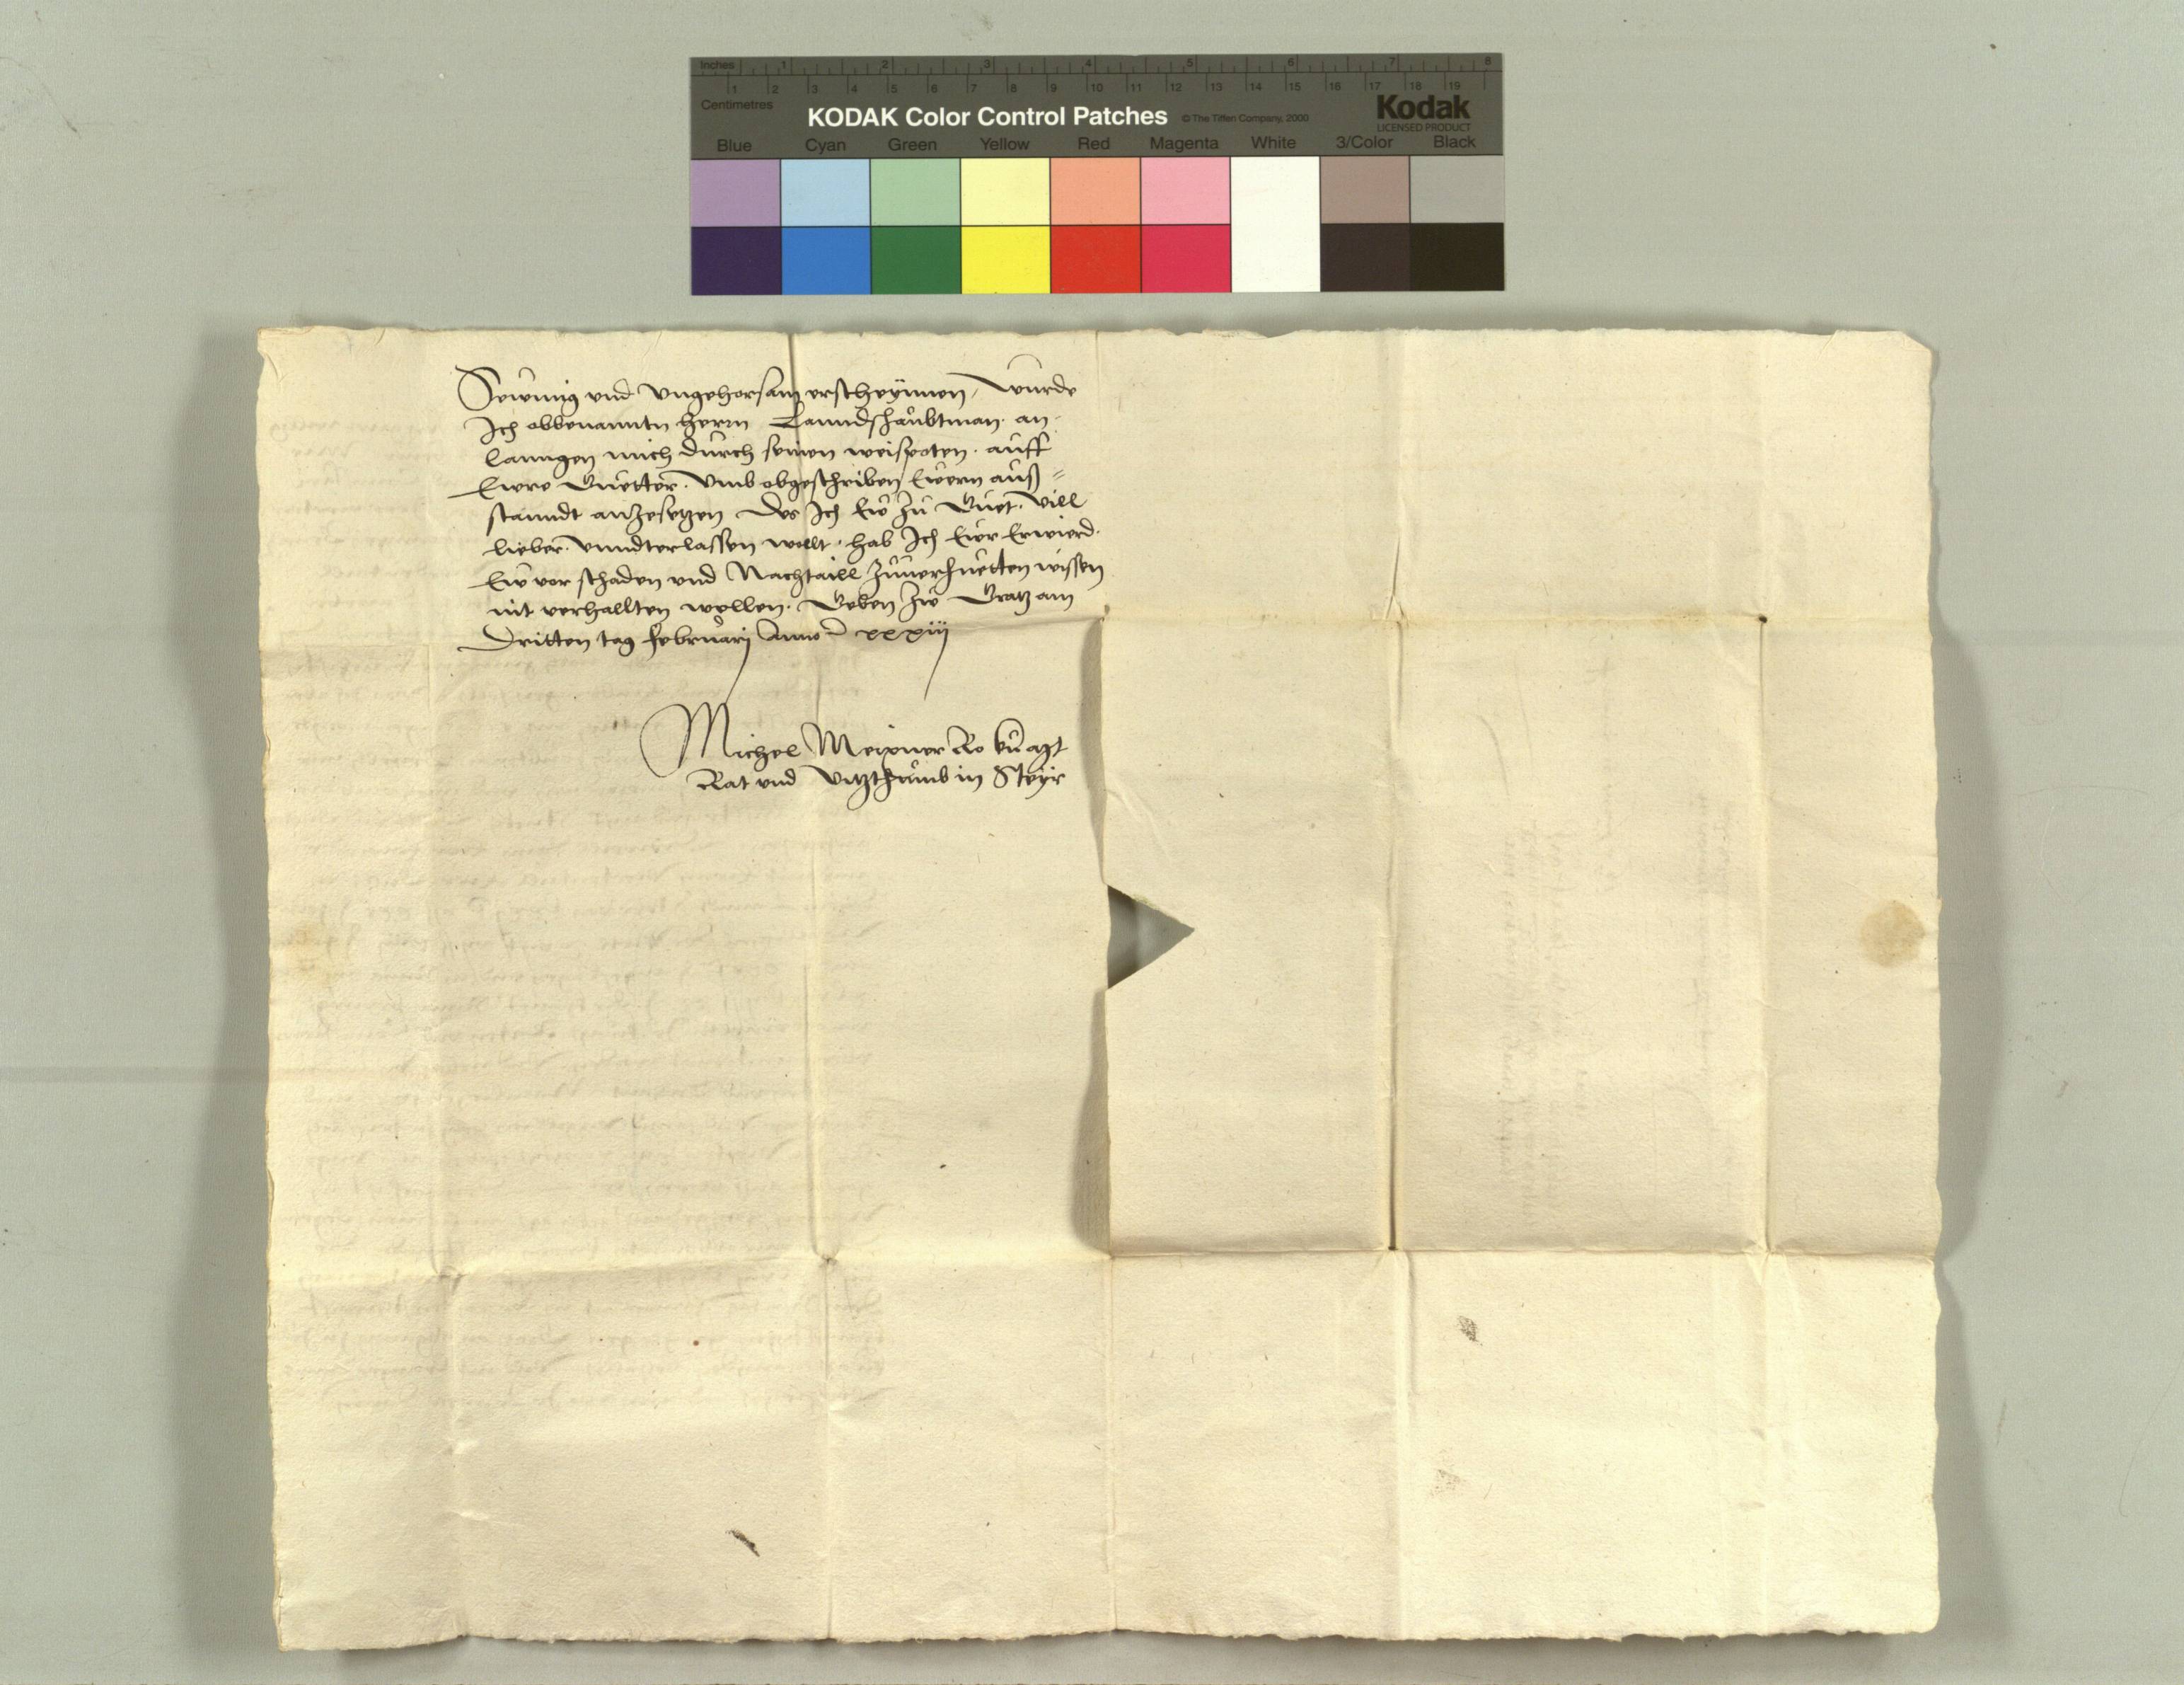 Inches 1 2 3 4 5 6 7 8
1 2 3 4 5 6 7 8 9 10 11 12 13 14 15 16 17 18 19
Centimetres
KODAK Color Control Patches © The Tiffen Company, 2000 Kodak
LICENSED PRODUCT
Blue Cyan Green Yellow Red Magenta White 3/Color Black
Sewmig und Ungehorsam erscheynnen, wurde
Ich obbenanntn herrn Lanndshaubtman. an-
lanngen mich durch seinen weispoten. auff
Ewre Guetter. Umb obgeschriben Ewern auß=
stanndt anzesetzen Des Ich Ew zu Guet. vill
lieber. unndterlassen wollt. hab Ich Ewr Erwierd.
Ew vor schaden und Nachtaill zuverhuetten wissen
nit verhallten wellen. Geben zw Gratz am
Dritten tag februarj Anno xxxiij
Michel Meixner Ro ku
Rat und Vitzthumb in Steyr